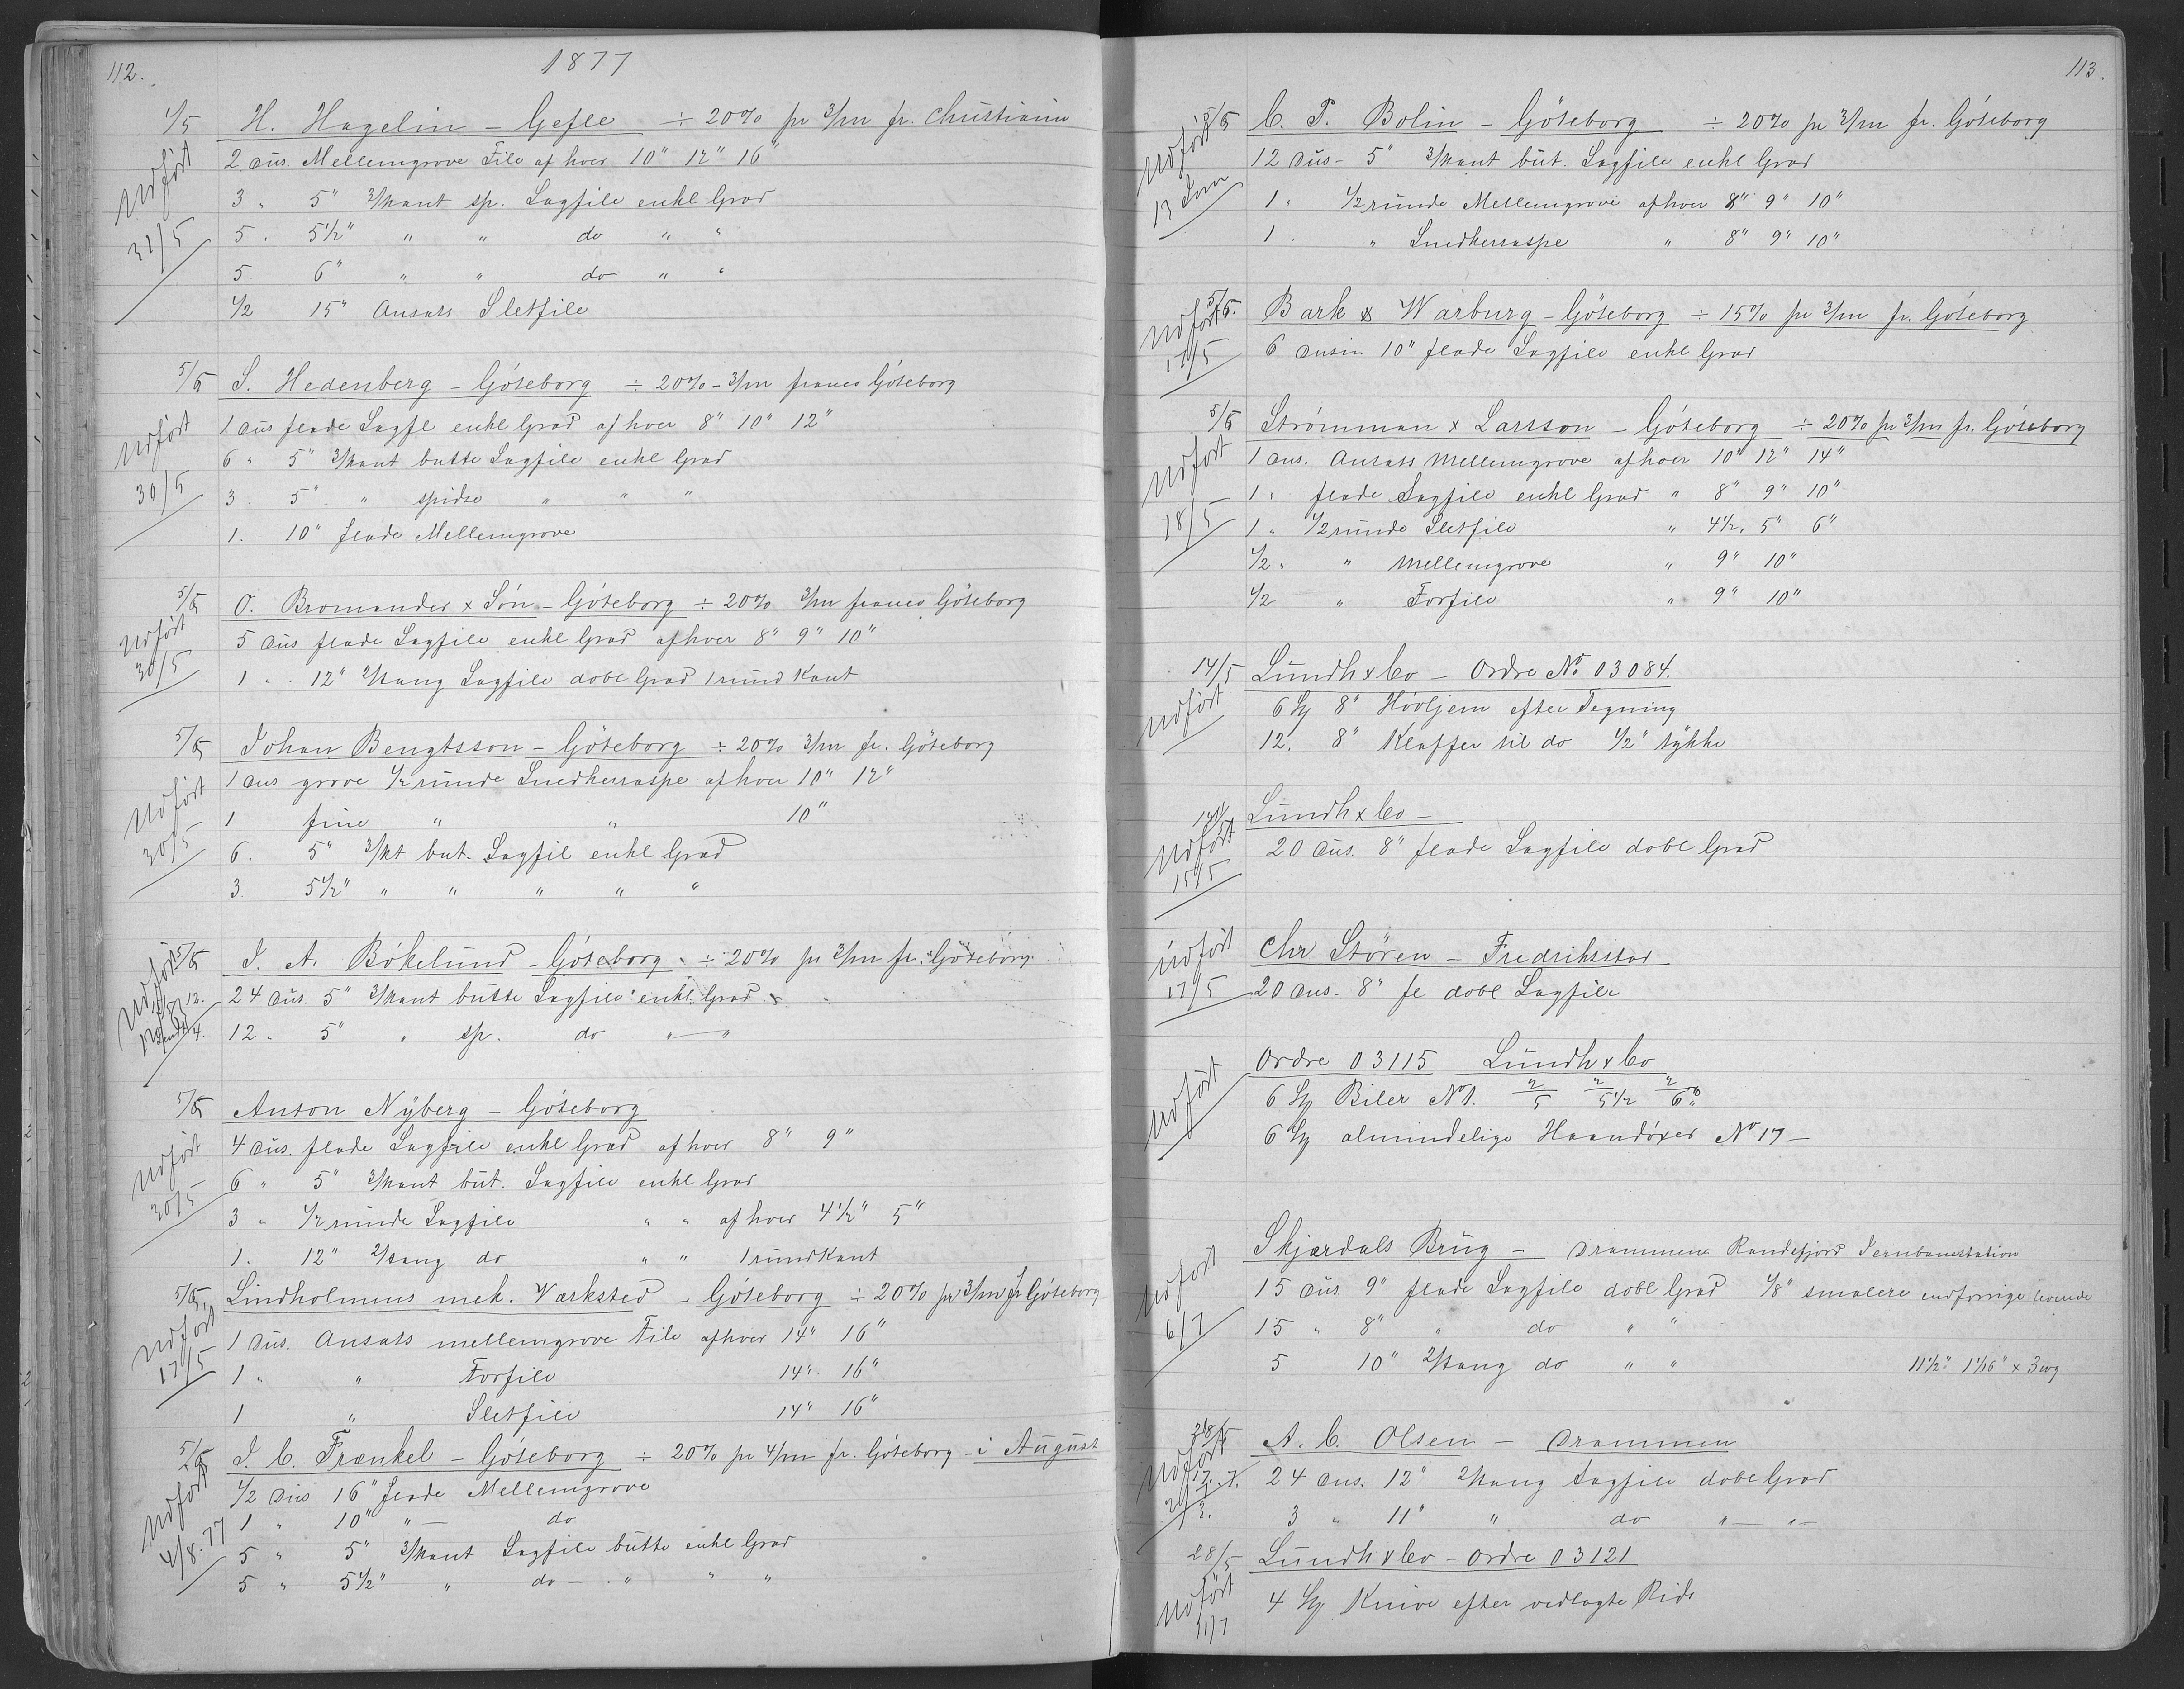 112.
1877
4/5 H. Hagelin – Gefle ÷ 20% pr 3/m fr. Christiania
Udført 2 Dus. Mellemgrove File af hver 10" 12" 16"
3 " 5" 3/kant sp. Sagfile enkl Grad
31/5 5 " 5 1/2" " " do " "
5 6" " " do " "
1/2 15" Ansats Sletfile
5/5 S. Hedenberg – Göteborg ÷ 20% – 3/m franco Göteborg
1 Dus flade Sagfl enkl Grad af hver 8" 10" 12"
Udført 6 " 5" 3/kant butte Sagfile enkl Grad
30/5 3 . 5" " spidse " " "
1. 10" flade Mellemgrove
5/5 O. Bromander & Sön – Göteborg ÷ 20% 3/m franco Göteborg
Udført 5 Dus flade Sagfile enkl Grad af hver 8" 9" 10"
30/5 1 " . 12" 2/kang Sagfile dobl Grad 1 rund Kant
5/5 Johan Bengtsson – Göteborg ÷ 20% 3/m fr. Göteborg
1 Dus grove 1/2 runde Snedkerraspe af hver 10" 12"
Udført 1 fine " " 10"
30/5 6. 5" 3/kt but. Sagfil enkl Grad
3. 5 1/2" " " " " "
5/5 J. A. Bökelund – Göteborg ÷ 20% pr 3/m fr. Göteborg
Udført 24 Dus. 5" 3/kant butte Sagfile enkl. Grad
12 " 5" " sp. do " — "
5/5 Anton Nyberg – Göteborg
4 Dus. flade Sagfile enkl Grad af hver 8" 9"
Udført 6 " 5" 3/kant but. Sagfile enkl Grad
30/5 3 " 1/2 runde Sagfile " " af hver 4 1/2" 5"
1. 12" 2/kang do " " 1 rund Kant
5/5 Lindholmens mek. Værksted – Göteborg ÷ 20% pr 3/m fr Göteborg
Udført 1 Dus. Ansats mellemgrove File af hver 14" 16"
17/5 1 " " Forfile 14" 16"
1 " Sletfile 14" 16"
5/5 J. C. Frænkel – Göteborg ÷ 20% pr 4/m fr. Göteborg – i August
Udført 1/2 Dus 16" flade Mellemgrove
4/8.77 1 " 10" " — do
5 " 5" 3/kant Sagfile butte enkl Grad
5 " 5 1/2" " do — " " "
113.
5/5 C. P. Bolin – Göteborg ÷ 20% pr 3/m fr. Göteborg
Udført 12 Dus – 5" 3/kant but. Sagfile enkl Grad
1 " 1/2 runde Mellemgrove af hver 8" 9" 10"
1 . " Snedkerraspe " 8" 9" 10"
5/5. Bark & Warburg – Göteborg ÷ 15% pr 3/m fr. Göteborg
Udført 17/5 6 Dusin 10" flade Sagfile enkl Grad
5/5 Strömman & Larsson – Göteborg ÷ 20% pr 3/m fr. Göteborg
Udført 1 Dus. Ansats Mellemgrove af hver 10" 12" 14"
18/5 1 " flade Sagfile enkl Grad " 8" 9" 10"
1 " 1/2 runde Sletfile " 4 1/2" 5" 6"
1/2 " " Mellemgrove " 9" 10"
1/2 " Forfile " 9" 10"
14/5 Lundh & Co – Ordre No 03084.
Udført 6 St 8" Hövljern efter Tegning
12. 8" Klaffer til do 1/2" tykke
14/5 Lundh & Co –
Udført 15/5 20 Dus. 8" flade Sagfile dobl Grad
Udført Chr Stören – Fredriksstad
17/5 20 Dus. 8" fl dobl Sagfile
Ordre 03115 Lundh & Co
Udført 6 St Biler No 1. 2/5 2/5 1/2 2/6"
6 St almindelige Haandöxer No 17 –
Skjærdals Brug – Drammens Randsfjord Jernbanestation
Udført 15 Dus 9" flade Sagfile dobl Grad 1/8" smalere end forrige
6/7 15 " 8" " do " "
5 10" 2/kang do " " 11 1/2" 1 1/16" x 3 wg
28/5 A. C. Olsen – Drammen
Udført 24 Dus. 12" 2/kang Sagfile dobl Grad
3 " 11" " do " — " —
28/5 Lundh & Co – Ordre 03121
Udført 11/7 4 St Knive efter vedlagte Rids